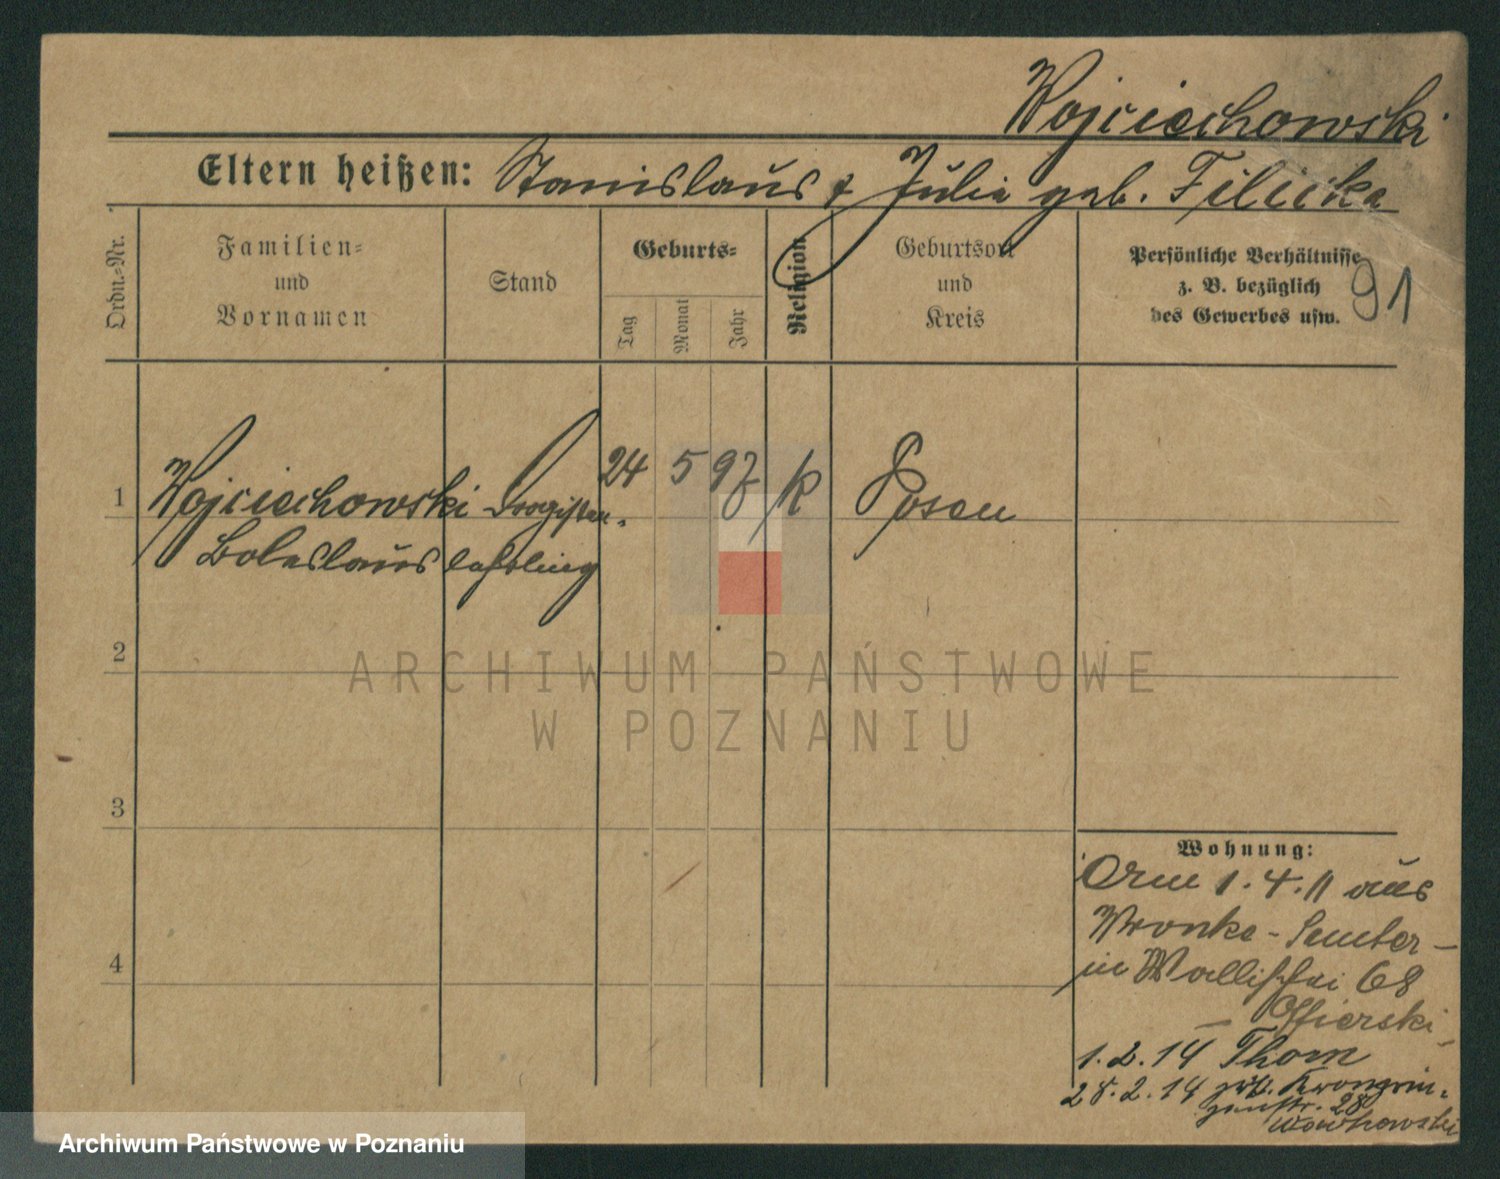 Wojciechowski
Eltern heißen: Stanislaus & Julia geb. Filicka
Ordn.-Nr.
Familien-
und
Vornamen
Stand
Geburts-
Tag
Monat
Jahr
Religion
Geburtsort
und
Kreis
Persönliche Verhältnisse
z. B. bezüglich
des Gewerbes usw.
91
1 Wojciechowski Drogisten- 24 5 97 k Posen
Boleslaus lehrling
2
3
4
Wohnung:
1.4.11 aus
Wronke - Samter -
in Wallischei 68
Offierski
1.2.14 Thorn
28.2.14 zck. Kronprin-
zenstr. 28
ARCHIWUM PAŃSTWOWE
W POZNANIU
Archiwum Państwowe w Poznaniu